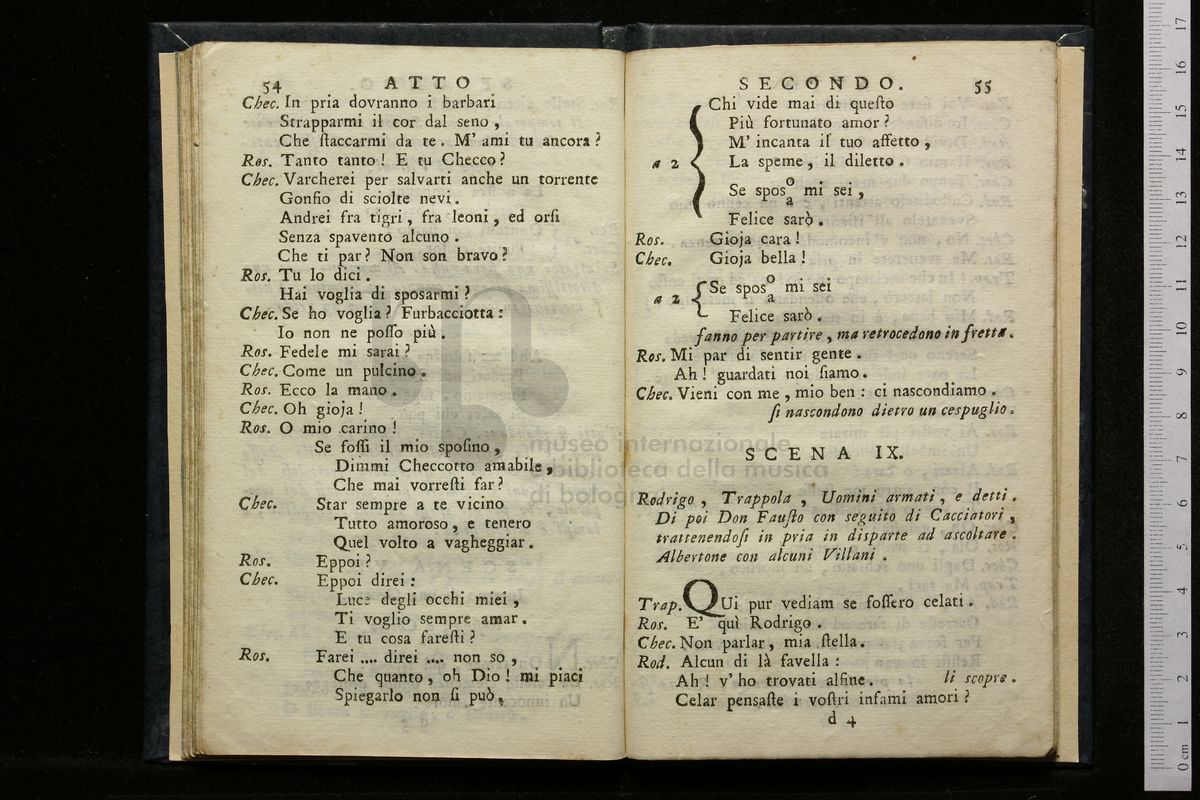 54 ATTO
Chec. In pria dovranno i barbari
Strapparmi il cor dal seno,
Che ſtaccarmi da te. M' ami tu ancora?
Ros. Tanto tanto! E tu Checco?
Chec. Varcherei per salvarti anche un torrente
Gonfio di sciolte nevi.
Andrei fra tigri, fra leoni, ed orſi
Senza spavento alcuno.
Che ti par? Non son bravo?
Ros. Tu lo dici.
Hai voglia di sposarmi?
Chec. Se ho voglia? Furbacciotta:
Io non ne poſſo più.
Ros. Fedele mi sarai?
Chec. Come un pulcino.
Ros. Ecco la mano.
Chec. Oh gioja!
Ros. O mio carino!
Se foſſi il mio spoſino,
Dimmi Checcotto amabile,
Che mai vorreſti far?
Chec. Star sempre a te vicino
Tutto amoroso, e tenero
Quel volto a vagheggiar.
Ros. Eppoi?
Chec. Eppoi direi:
Luce degli occhi miei,
Ti voglio sempre amar.
E tu cosa fareſti?
Ros. Farei .... direi .... non so,
Che quanto, oh Dio! mi piaci
Spiegarlo non ſi può,
SECONDO. 55
Chi vide mai di queſto
Più fortunato amor?
M' incanta il tuo affetto,
a 2 La speme, il diletto.
Se spos o mi sei,
a
Felice sarò.
Ros. Gioja cara!
Chec. Gioja bella!
a 2 Se spos o mi sei
a
Felice sarò.
fanno per partire, ma retrocedono in fretta.
Ros. Mi par di sentir gente.
Ah! guardati noi ſiamo.
Chec. Vieni con me, mio ben: ci nascondiamo.
ſi nascondono dietro un cespuglio.
SCENA IX.
Rodrigo, Trappola, Uomini armati, e detti.
Di poi Don Fauſto con seguito di Cacciatori,
trattenendoſi in pria in disparte ad ascoltare.
Albertone con alcuni Villani.
Trap. QUi pur vediam se foſſero celati.
Ros. E' quì Rodrigo.
Chec. Non parlar, mia ſtella.
Rod. Alcun di là favella:
Ah! v' ho trovati alfine. li scopre.
Celar pensaſte i voſtri infami amori?
d 4
museo internazionale
e biblioteca della musica
di bologna
0 cm 1 2 3 4 5 6 7 8 9 10 11 12 13 14 15 16 17